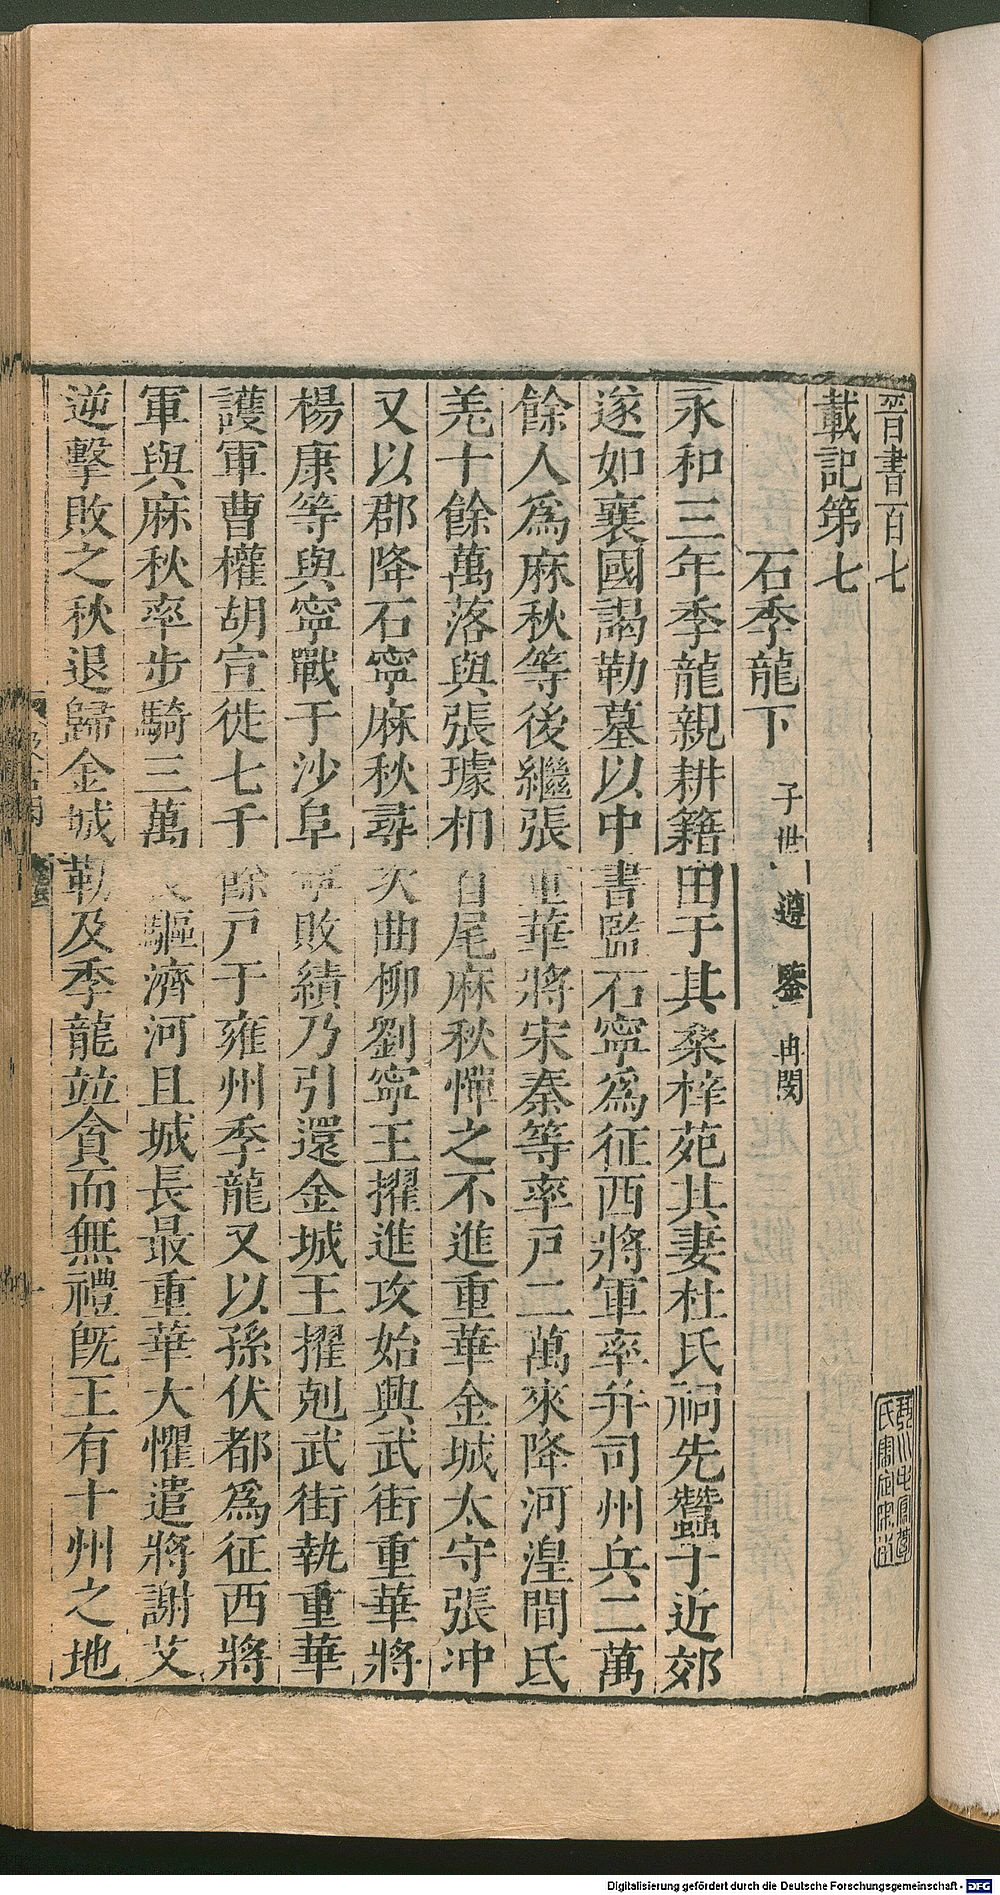 晉書百七
載記第七
石季龍下 子世 遵 鑒 冉閔
永和三年季龍親耕籍田于其桑梓苑其妻杜氏祠先蠶于近郊
遂如襄國謁勒墓以中書監石寧爲征西將軍率并司州兵二萬
餘人爲麻秋等後繼張重華將宋秦等率戸二萬來降河湟間氐
羌十餘萬落與張璩相首尾麻秋憚之不進重華金城太守張冲
又以郡降石寧麻秋尋次曲柳劉寧王擢進攻始興武街重華將
楊康等與寧戰于沙阜寧敗績乃引還金城王擢剋武街執重華
護軍曹權胡宣徙七千餘戸于雍州季龍又以孫伏都爲征西將
軍與麻秋率步騎三萬長驅濟河且城長最重華大懼遣將謝艾
逆擊敗之秋退歸金城勒及季龍竝貪而無禮旣王有十州之地
Digitalisierung gefördert durch die Deutsche Forschungsgemeinschaft - DFG